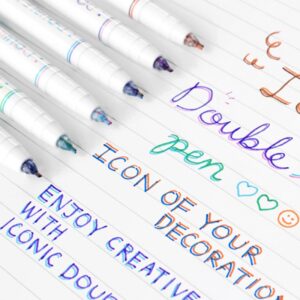 Double
pen
ICON OF YOUR
DECORATION
ENJOY CREATIVE
WITH
ICONIC DOU